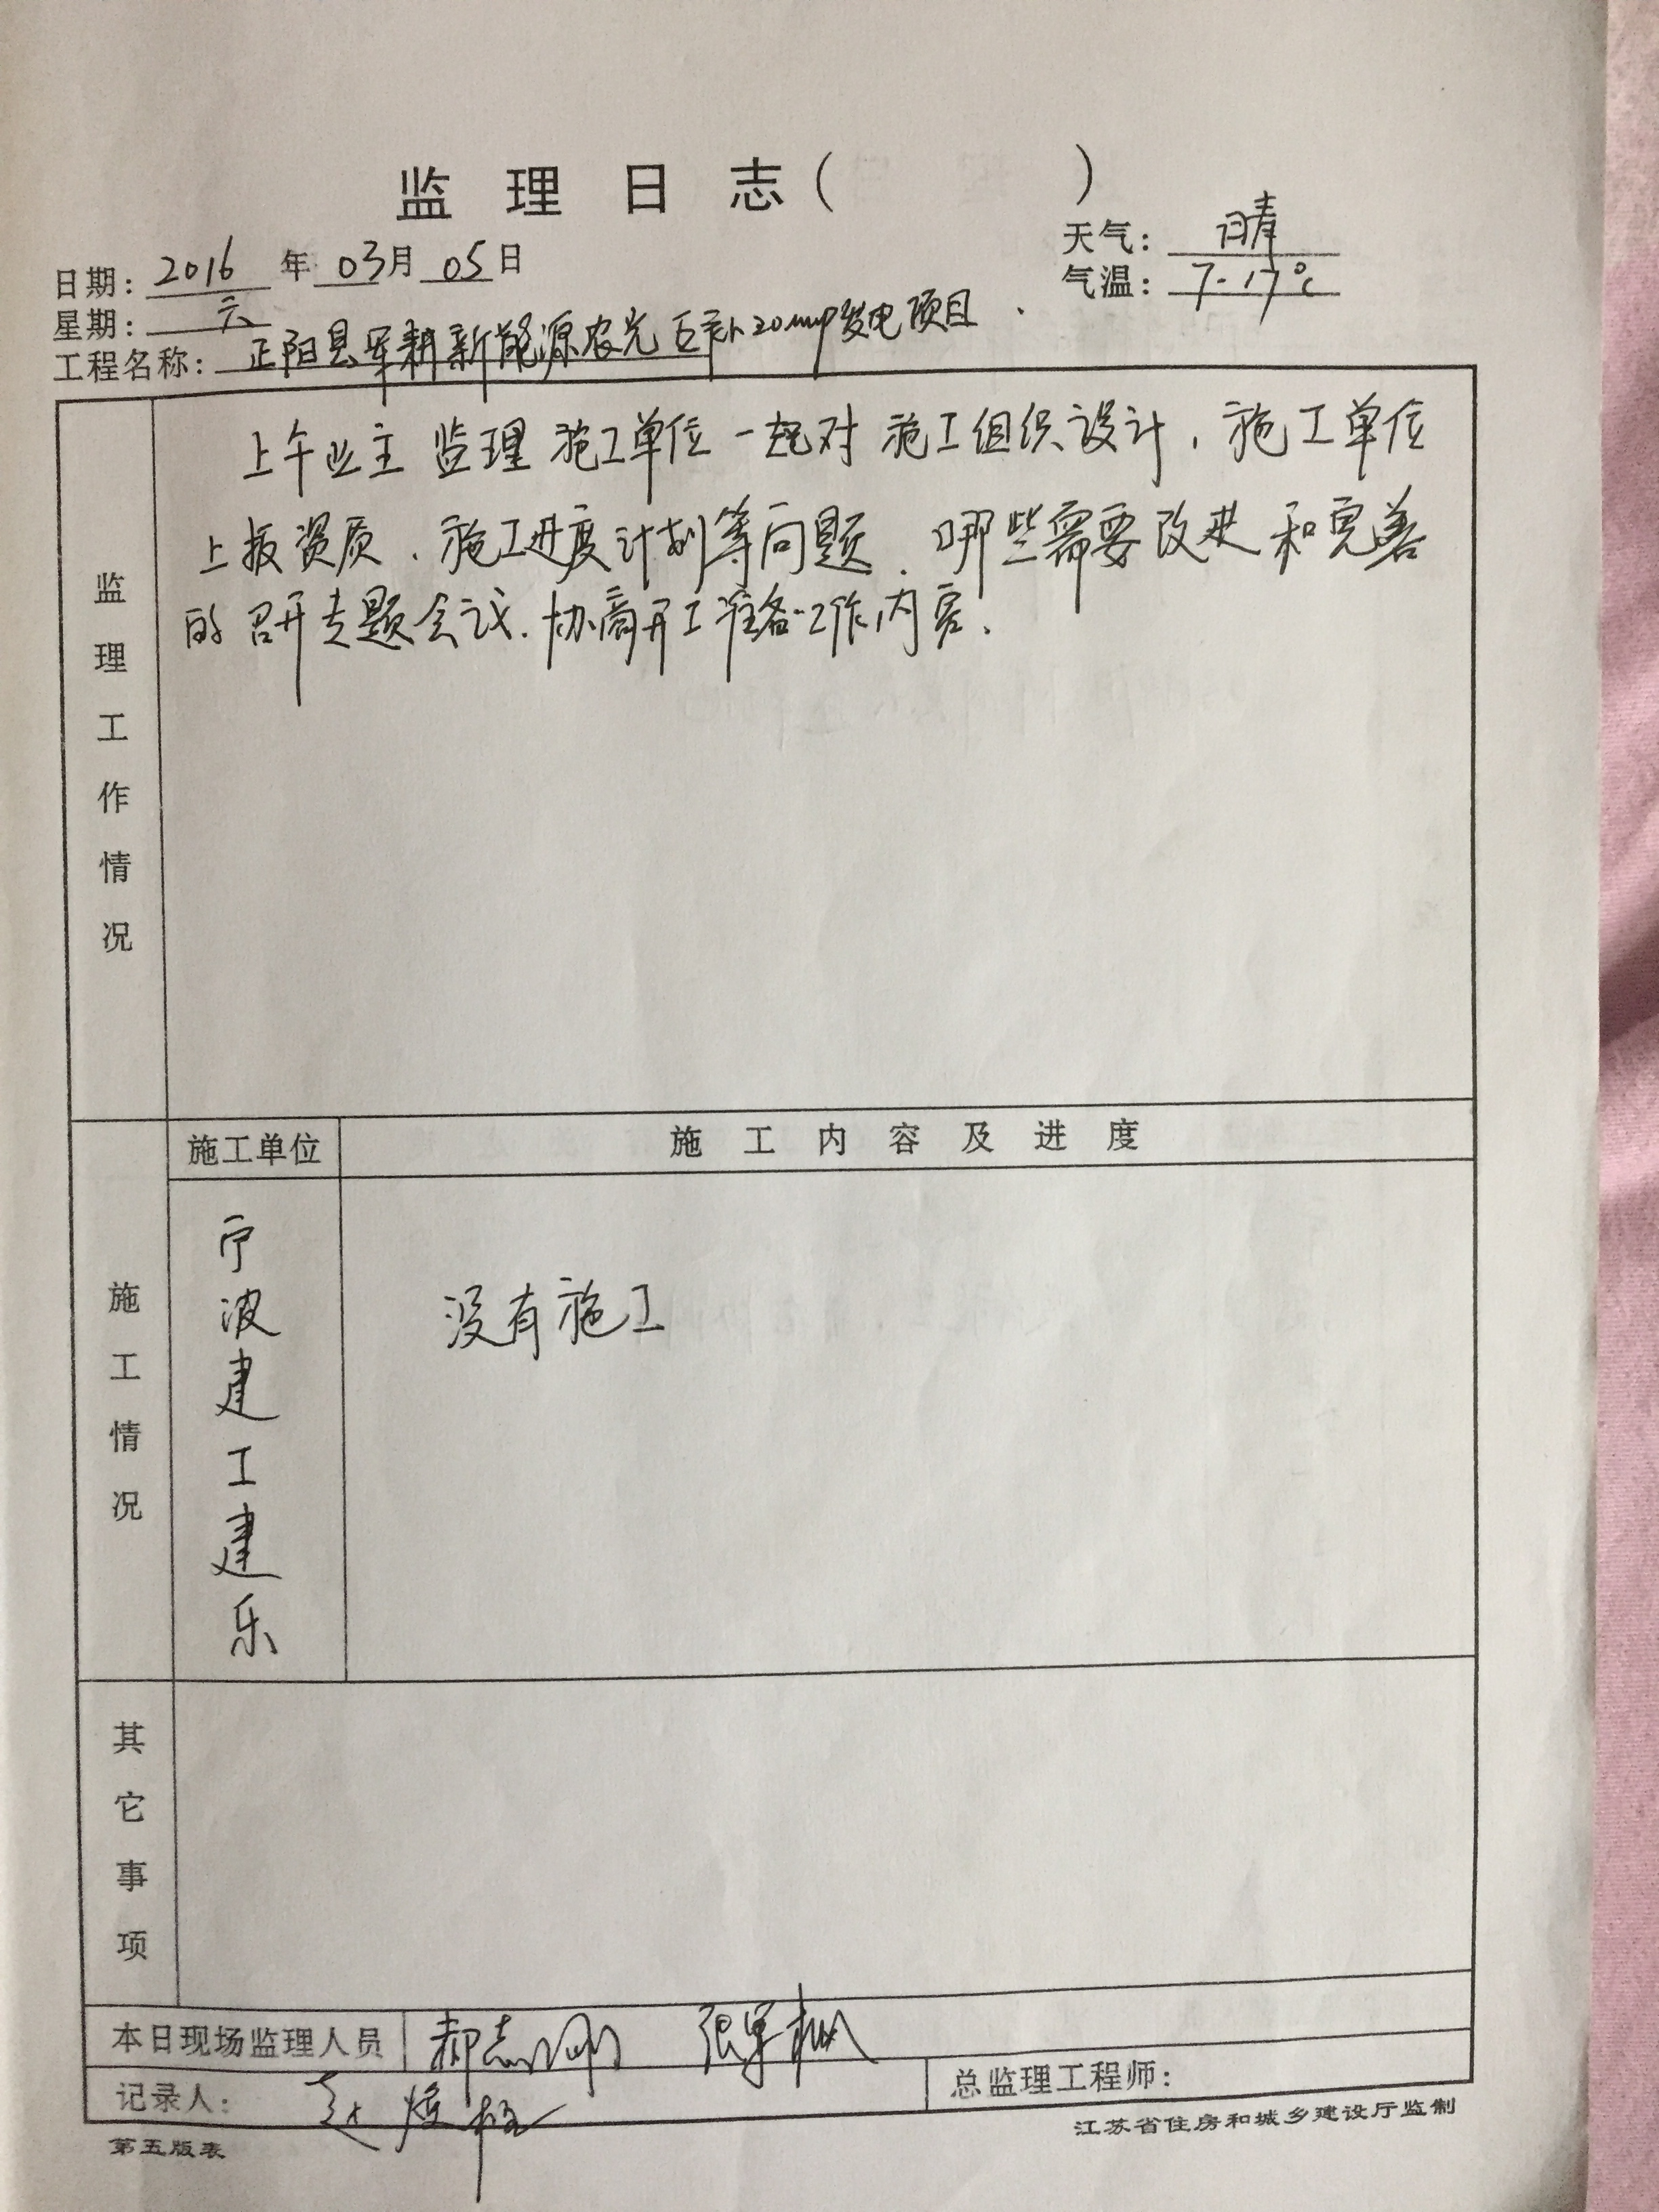 监理日志（　　　）
天气：晴
日期：2016年03月05日
气温：7-17℃
星期：六
工程名称：正阳县军耕新能源农光互补20mwp发电项目.
监理工作情况
上午业主 监理 施工单位一起对 施工组织设计，施工单位
上报资质、施工进度计划等问题、哪些需要改进和完善
的召开专题会议、协商开工准备工作内容、
施工单位 施工内容及进度
施工情况
宁波建工建乐
没有施工
其它事项
本日现场监理人员 郝志刚
记录人：
总监理工程师：
第五版表 江苏省住房和城乡建设厅监制